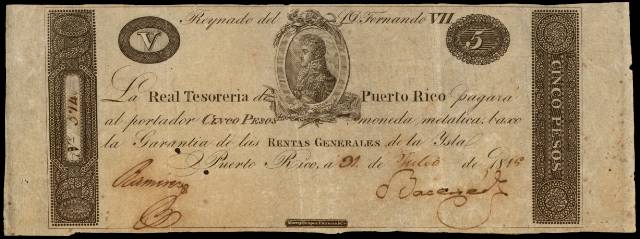 Reynado del Sr Dn Fernando VII.
V
5
La Real Tesoreria de Puerto Rico pagará
al portador CINCO PESOS moneda metalica, baxo
la Garantia de las RENTAS GENERALES de la Ysla
Puerto Rico, a 31. de Julio de 1815
No 374
CINCO PESOS
Ramirez